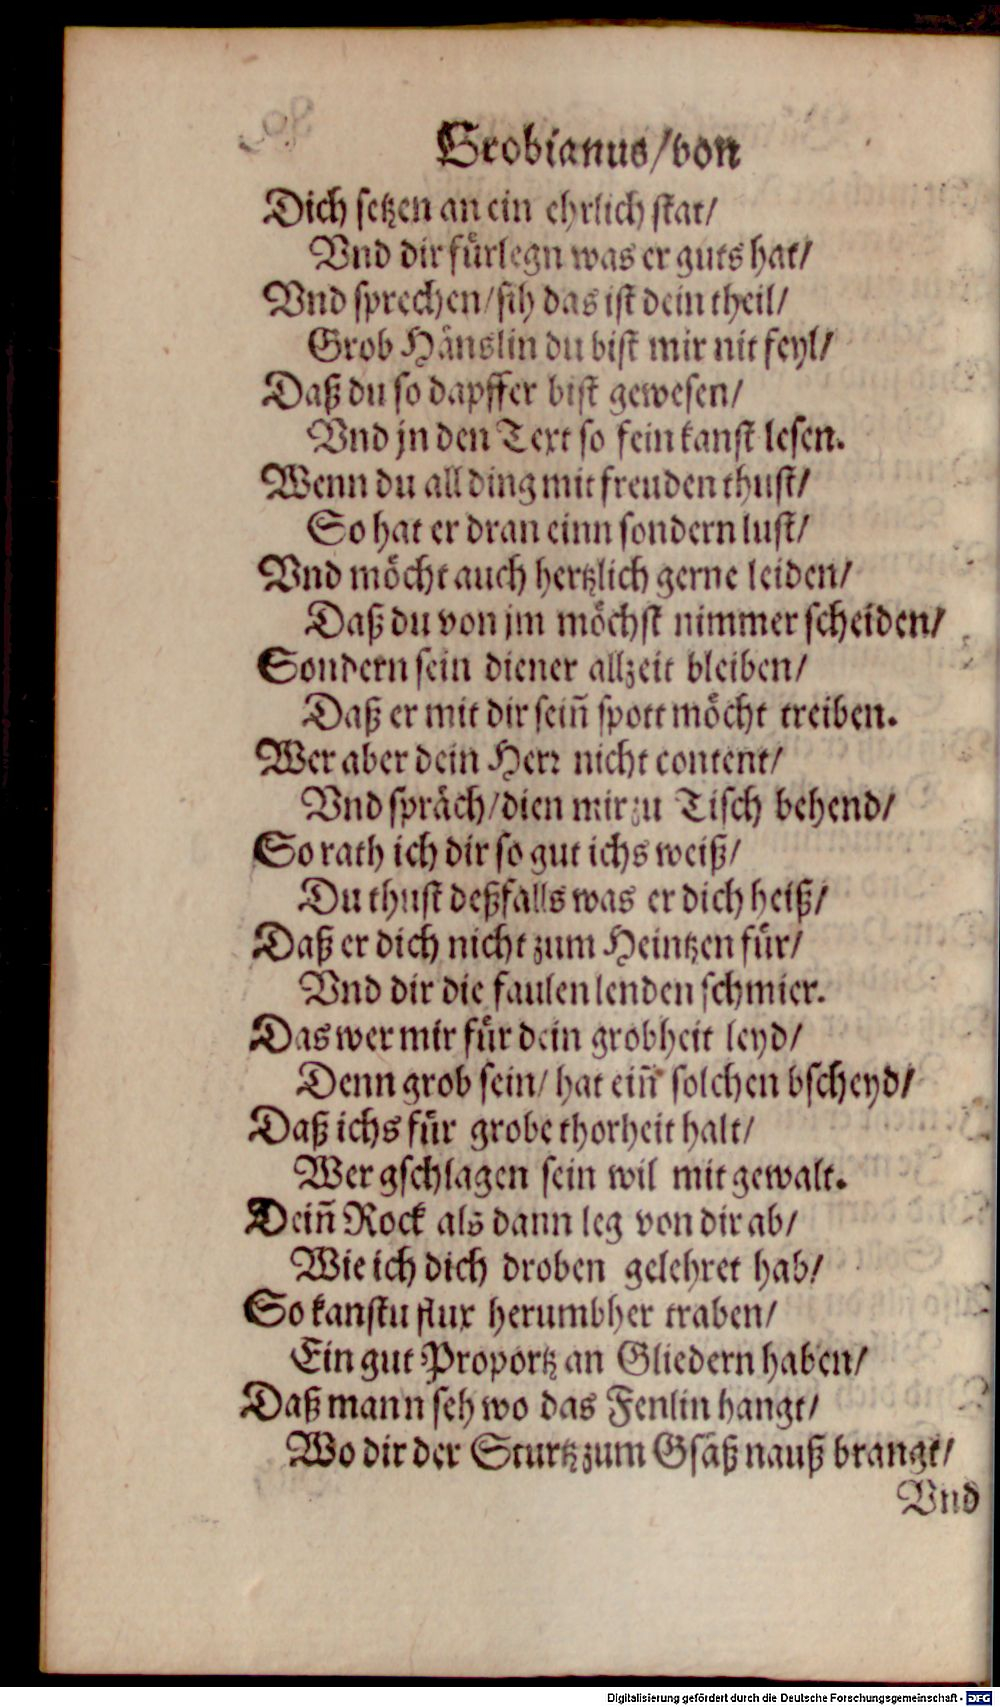 Grobianus/von
Dich setzen an ein ehrlich stat/
Vnd dir fürlegn was er guts hat/
Vnd sprechen/sih das ist dein theil/
Grob Hänslin du bist mir nit feyl/
Daß du so dapffer bist gewesen/
Vnd jn den Text so fein kanst lesen.
Wenn du all ding mit freuden thust/
So hat er dran einn sondern lust/
Vnd möcht auch hertzlich gerne leiden/
Daß du von jm möchst nimmer scheiden/
Sondern sein diener allzeit bleiben/
Daß er mit dir sein̄ spott möcht treiben.
Wer aber dein Herr nicht content/
Vnd spräch/dien mir zu Tisch behend/
So rath ich dir so gut ichs weiß/
Du thust deßfalls was er dich heiß/
Daß er dich nicht zum Heintzen für/
Vnd dir die faulen lenden schmier.
Das wer mir für dein grobheit leyd/
Denn grob sein/ hat ein̄ solchen bscheyd/
Daß ichs für grobe thorheit halt/
Wer gschlagen sein wil mit gewalt.
Dein̄ Rock als dann leg von dir ab/
Wie ich dich droben gelehret hab/
So kanstu flux herumbher traben/
Ein gut Proportz an Gliedern haben/
Daß mann seh wo das Fenlin hangt/
Wo dir der Sturtz zum Gsäß nauß brangt/
Vnd
Digitalisierung gefördert durch die Deutsche Forschungsgemeinschaft - DFG